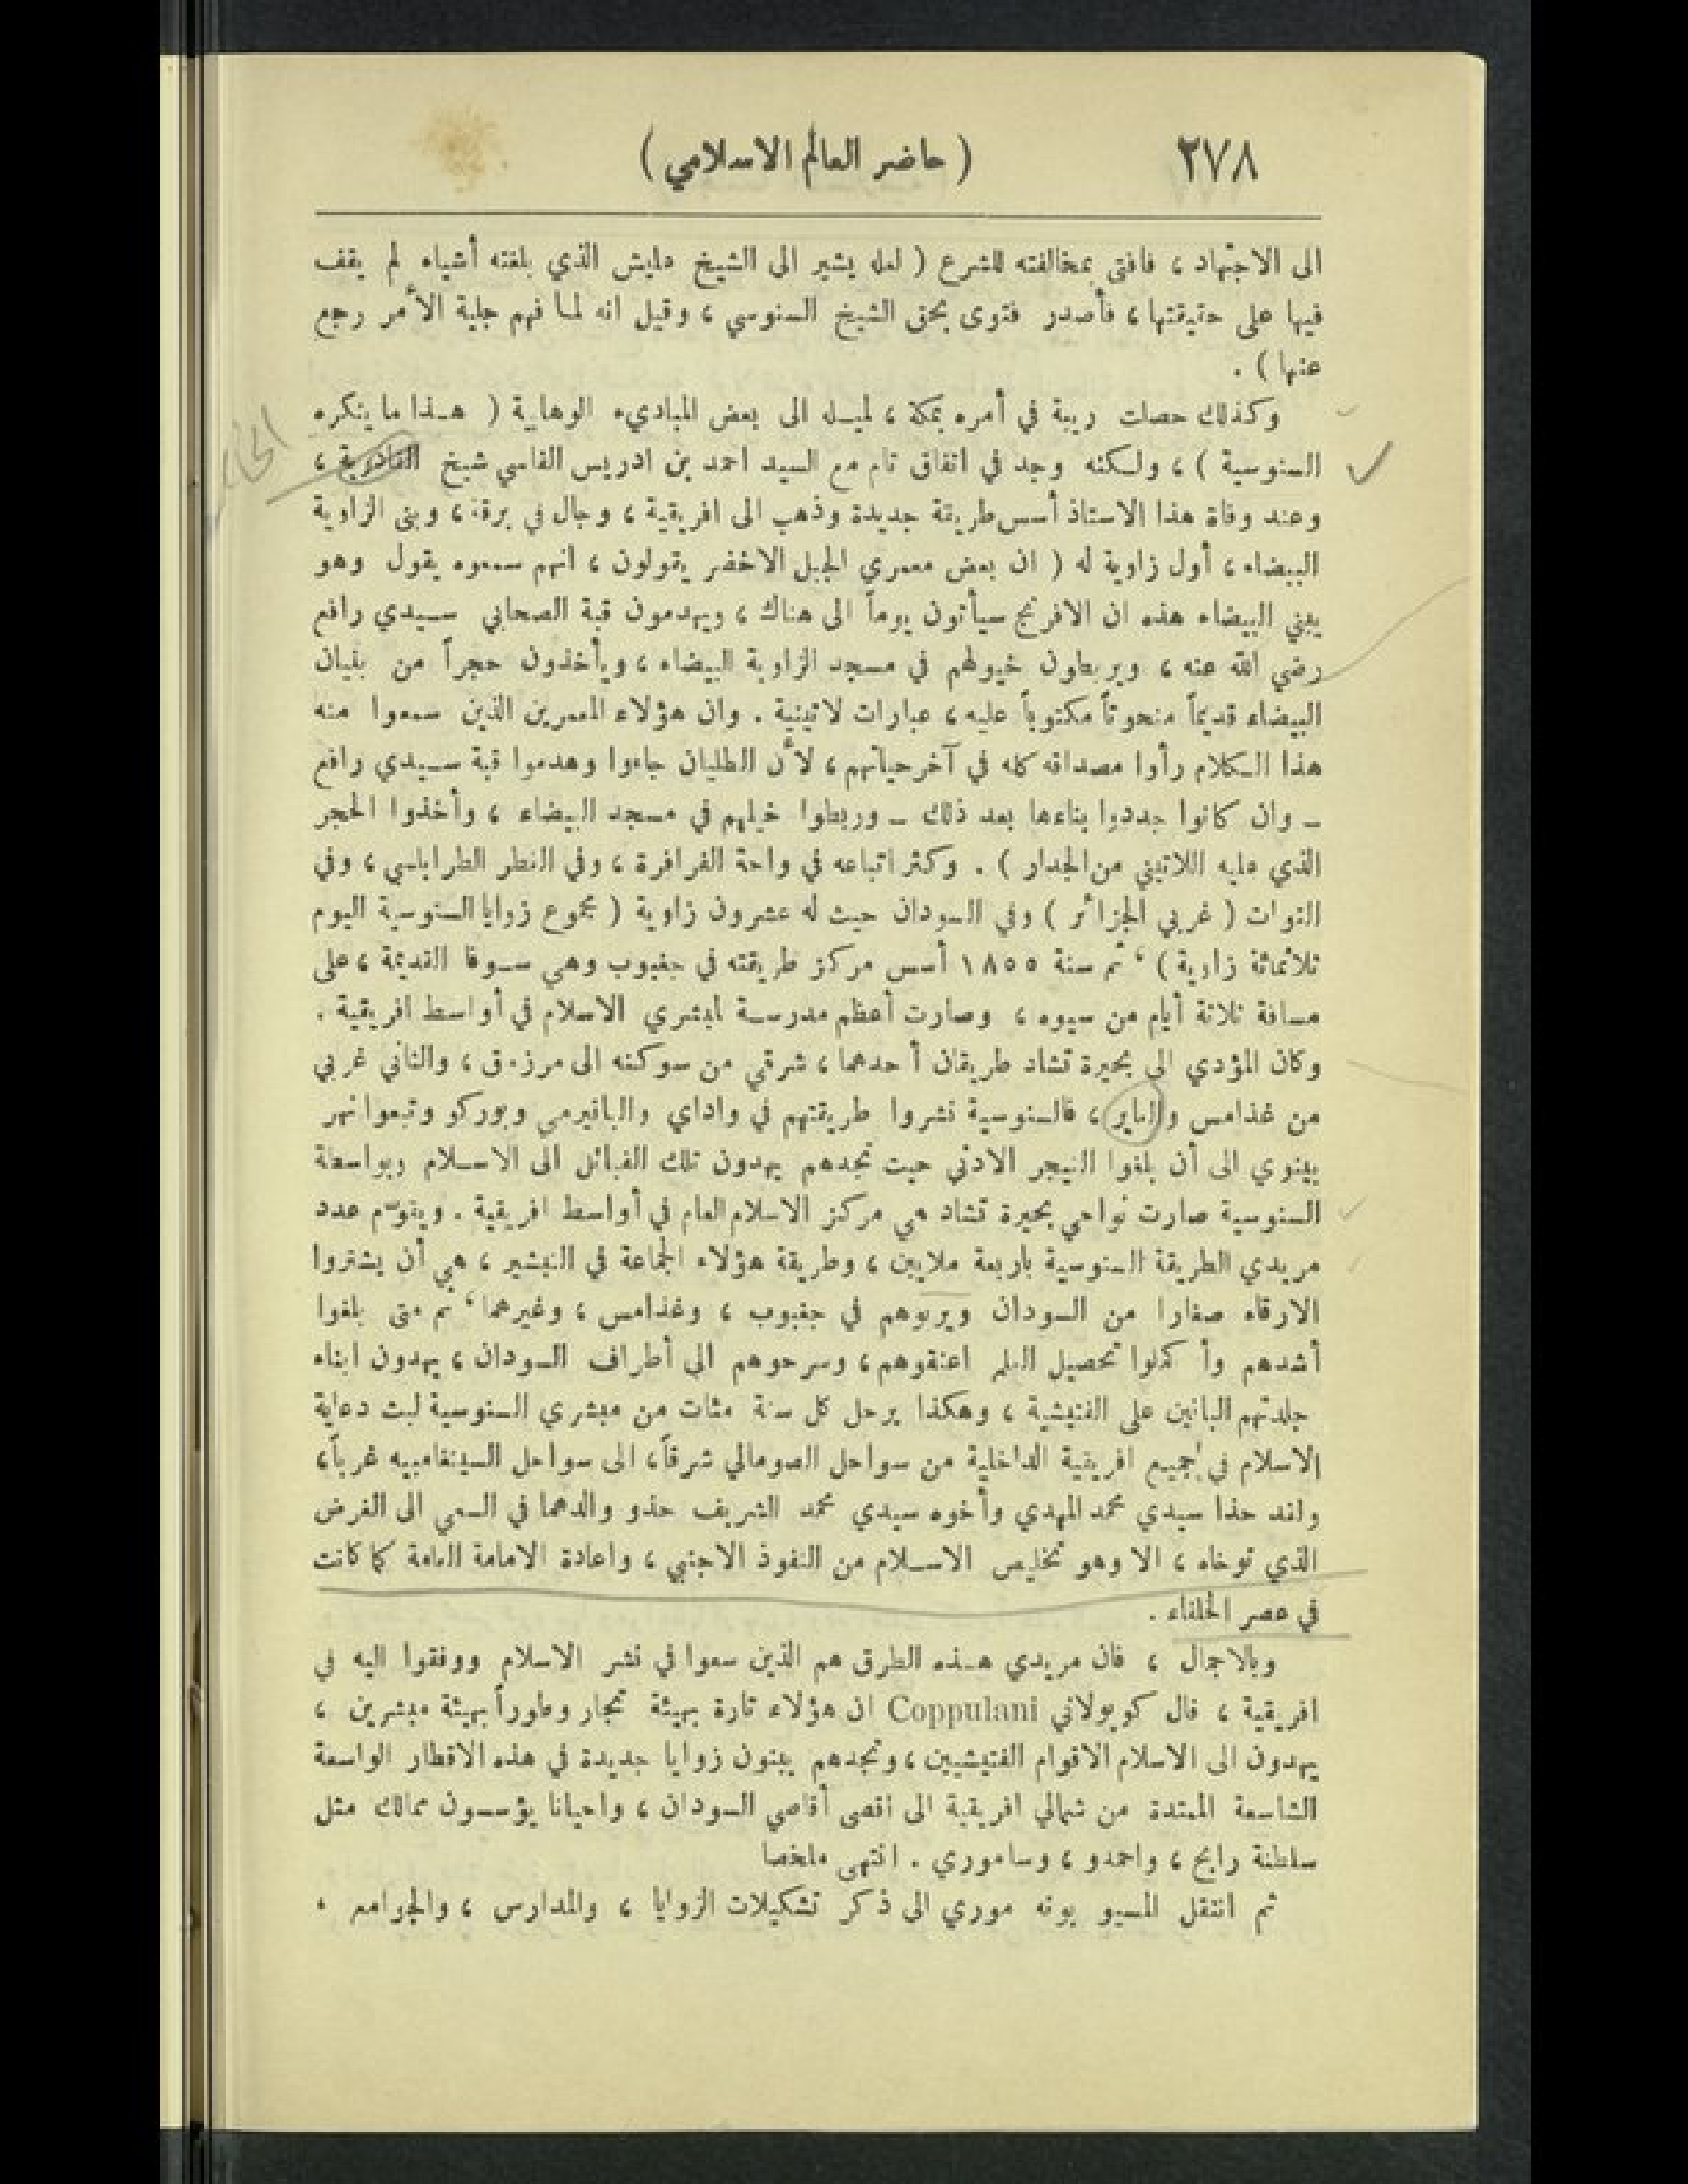 ٢٧٨
( حاضر العالم الاسلامي )
الى الاجتهاد ، فافتى بمخالفته للشرع ( لعله يشير الى الشيخ عليش الذي بلغته أشياء لم يقف
فيها على حقيقتها ، فأصدر فتوى بحق الشيخ السنوسي ، وقيل انه لما فهم جلية الأمر رجع
عنها ) .
وكذلك حصلت ريبة في أمره بمكة ، لميله الى بعض المباديء الوهابية ( هذا ما ينكره
السنوسية ) ، ولكنه وجد في اتفاق تام مع السيد احمد بن ادريس الفاسي شيخ القادرية ،
وعند وفاة هذا الاستاذ أسس طريقة جديدة وذهب الى افريقية ، وجال في برقة ، وبنى الزاوية
البيضاء ، أول زاوية له ( ان بعض معمري الجبل الاخضر يقولون ، انهم سمعوه يقول وهو
يبني البيضاء هذه ان الافرنج سيأتون يوماً الى هناك ، ويهدمون قبة الصحابي سيدي رافع
رضي الله عنه ، ويربطون خيولهم في مسجد الزاوية البيضاء ، ويأخذون حجراً من بنيان
البيضاء قديماً منحوتاً مكتوباً عليه ، عبارات لاتينية . وان هؤلاء المعمرين الذين سمعوا منه
هذا الكلام رأوا مصداقه كله في آخر حياتهم ، لأن الطليان جاءوا وهدموا قبة سيدي رافع
ـ وان كانوا جددوا بناءها بعد ذلك ـ وربطوا خيلهم في مسجد البيضاء ، وأخذوا الحجر
الذي عليه اللاتيني من الجدار ) . وكثر اتباعه في واحة الفرافرة ، وفي القطر الطرابلسي ، وفي
التوات ( غربي الجزائر ) وفي السودان حيث له عشرون زاوية ( مجموع زوايا السنوسية اليوم
ثلاثمائة زاوية ) ، ثم سنة ١٨٥٥ أسس مركز طريقته في جغبوب وهي سوفا القديمة ، على
مسافة ثلاثة أيام من سيوه ، وصارت أعظم مدرسة لمبشري الاسلام في أواسط افريقية .
وكان المؤدي الى بحيرة تشاد طريقان أحدهما ، شرقي من سوكنه الى مرزوق ، والثاني غربي
من غذامس والباير ، فالسنوسية نشروا طريقتهم في واداي والباغيرمي وبوركو وتبعوا نهر
بينوي الى أن بلغوا النيجر الادنى حيث تجدهم يهدون تلك القبائل الى الاسلام وبواسطة
السنوسية صارت نواحي بحيرة تشاد هي مركز الاسلام العام في أواسط افريقية . ويقوّم عدد
مريدي الطريقة السنوسية باربعة ملايين ، وطريقة هؤلاء الجماعة في التبشير ، هي أن يشتروا
الارقاء صغارا من السودان ويربوهم في جغبوب ، وغذامس ، وغيرهما ، ثم متى بلغوا
أشدهم وأكملوا تحصيل العلم اعتقوهم ، وسرحوهم الى أطراف السودان ، يهدون ابناء
جلدتهم الباقين على الفتيشية ، وهكذا يرحل كل سنة مئات من مبشري السنوسية لبث دعاية
الاسلام في جميع افريقية الداخلية من سواحل الصومالي شرقاً ، الى سواحل السينغامبيه غرباً ،
ولقد حذا سيدي محمد المهدي وأخوه سيدي محمد الشريف حذو والدهما في السعي الى الغرض
الذي توخاه ، الا وهو تخليص الاسلام من النفوذ الاجنبي ، واعادة الامامة العامة كما كانت
في عصر الخلفاء .
وبالاجمال ، فان مريدي هذه الطرق هم الذين سعوا في نشر الاسلام ووفقوا اليه في
افريقية ، قال كوبولاني Coppulani ان هؤلاء تارة بهيئة تجار وطوراً بهيئة مبشرين ،
يهدون الى الاسلام الاقوام الفتيشيين ، وتجدهم يبنون زوايا جديدة في هذه الاقطار الواسعة
الشاسعة الممتدة من شمالي افريقية الى اقصى أقاصي السودان ، واحيانا يؤسسون ممالك مثل
سلطنة رابح ، واحمدو ، وساموري . انتهى ملخصا
ثم انتقل المسيو بونه موري الى ذكر تشكيلات الزوايا ، والمدارس ، والجوامع .